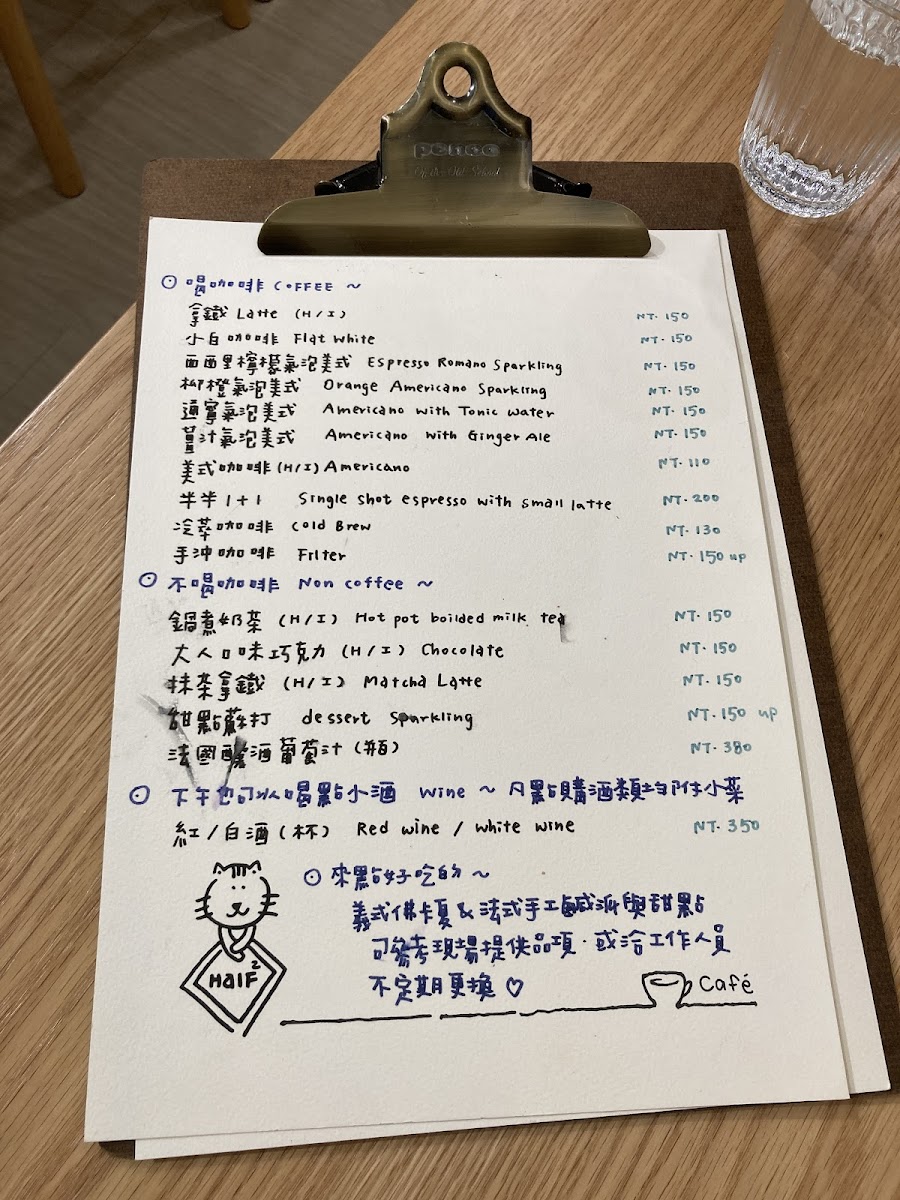 penco
Of the Old School
⊙ 喝咖啡 COFFEE ~
拿鐵 Latte (H/I) NT. 150
小白咖啡 Flat white NT. 150
西西里檸檬氣泡美式 Espresso Romano Sparkling NT. 150
柳橙氣泡美式 Orange Americano Sparkling NT. 150
通寧氣泡美式 Americano with Tonic water NT. 150
薑汁氣泡美式 Americano with Ginger Ale NT. 150
美式咖啡 (H/I) Americano NT. 110
半半 1+1 Single shot espresso with small latte NT. 200
冷萃咖啡 Cold Brew NT. 130
手沖咖啡 Filter NT. 150 up
⊙ 不喝咖啡 Non coffee ~
鍋煮奶茶 (H/I) Hot pot boilded milk tea NT. 150
大人口味巧克力 (H/I) Chocolate NT. 150
抹茶拿鐵 (H/I) Matcha Latte NT. 150
甜點蘇打 dessert Sparkling NT. 150 up
法國釀酒葡萄汁 (瓶) NT. 380
⊙ 下午也可以喝點小酒 Wine ~ 凡點購酒類均附小菜
紅/白酒 (杯) Red wine / white wine NT. 350
⊙ 來點好吃的 ~
義式佛卡夏 & 法式手工鹹派與甜點
可參考現場提供品項·或洽工作人員
不定期更換 ♡
HalF²
Café